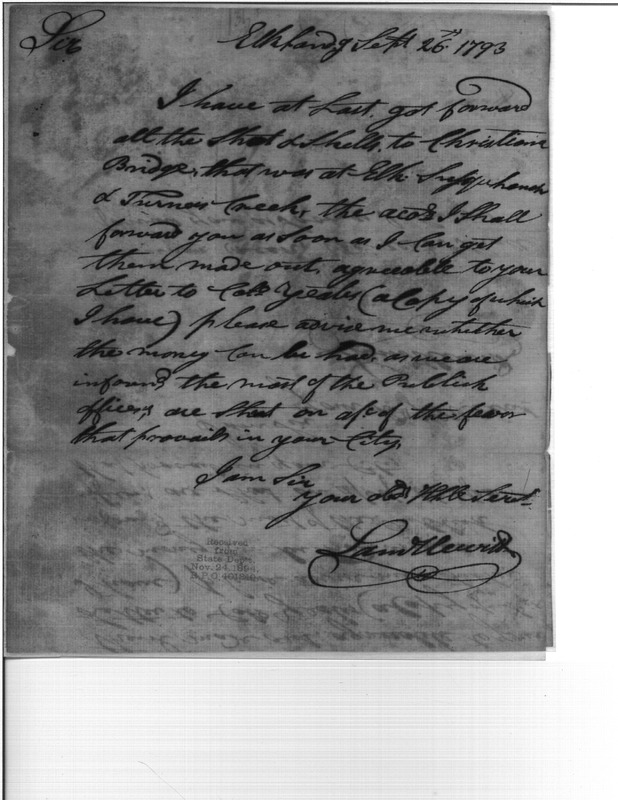 Sir
Elkland'g Sept. 26th 1793
I have at Last, got forward
all the Shot & Shells, to Christiana
Bridge, that was at Elk Susquehanah
& Turners Creek, the accots I Shall
forward you as Soon as I Can get
them made out, agreeable to your
Letter to Colo Yeates (a Copy of which
I have) please advise me whether
the money Can be had, as we are
inform'd the most of the Publick
offices are Shut on act of the fever
that provails in your City,
I am Sir
your obdt Hble Servt
Received
from
State Dept.
Nov. 24, 1894,